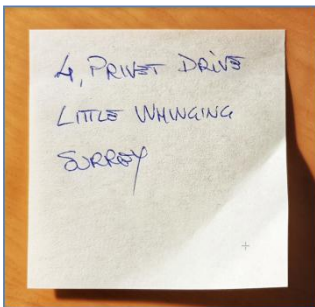 4, PRIVET DRIVE
LITTLE WHINGING
SURREY